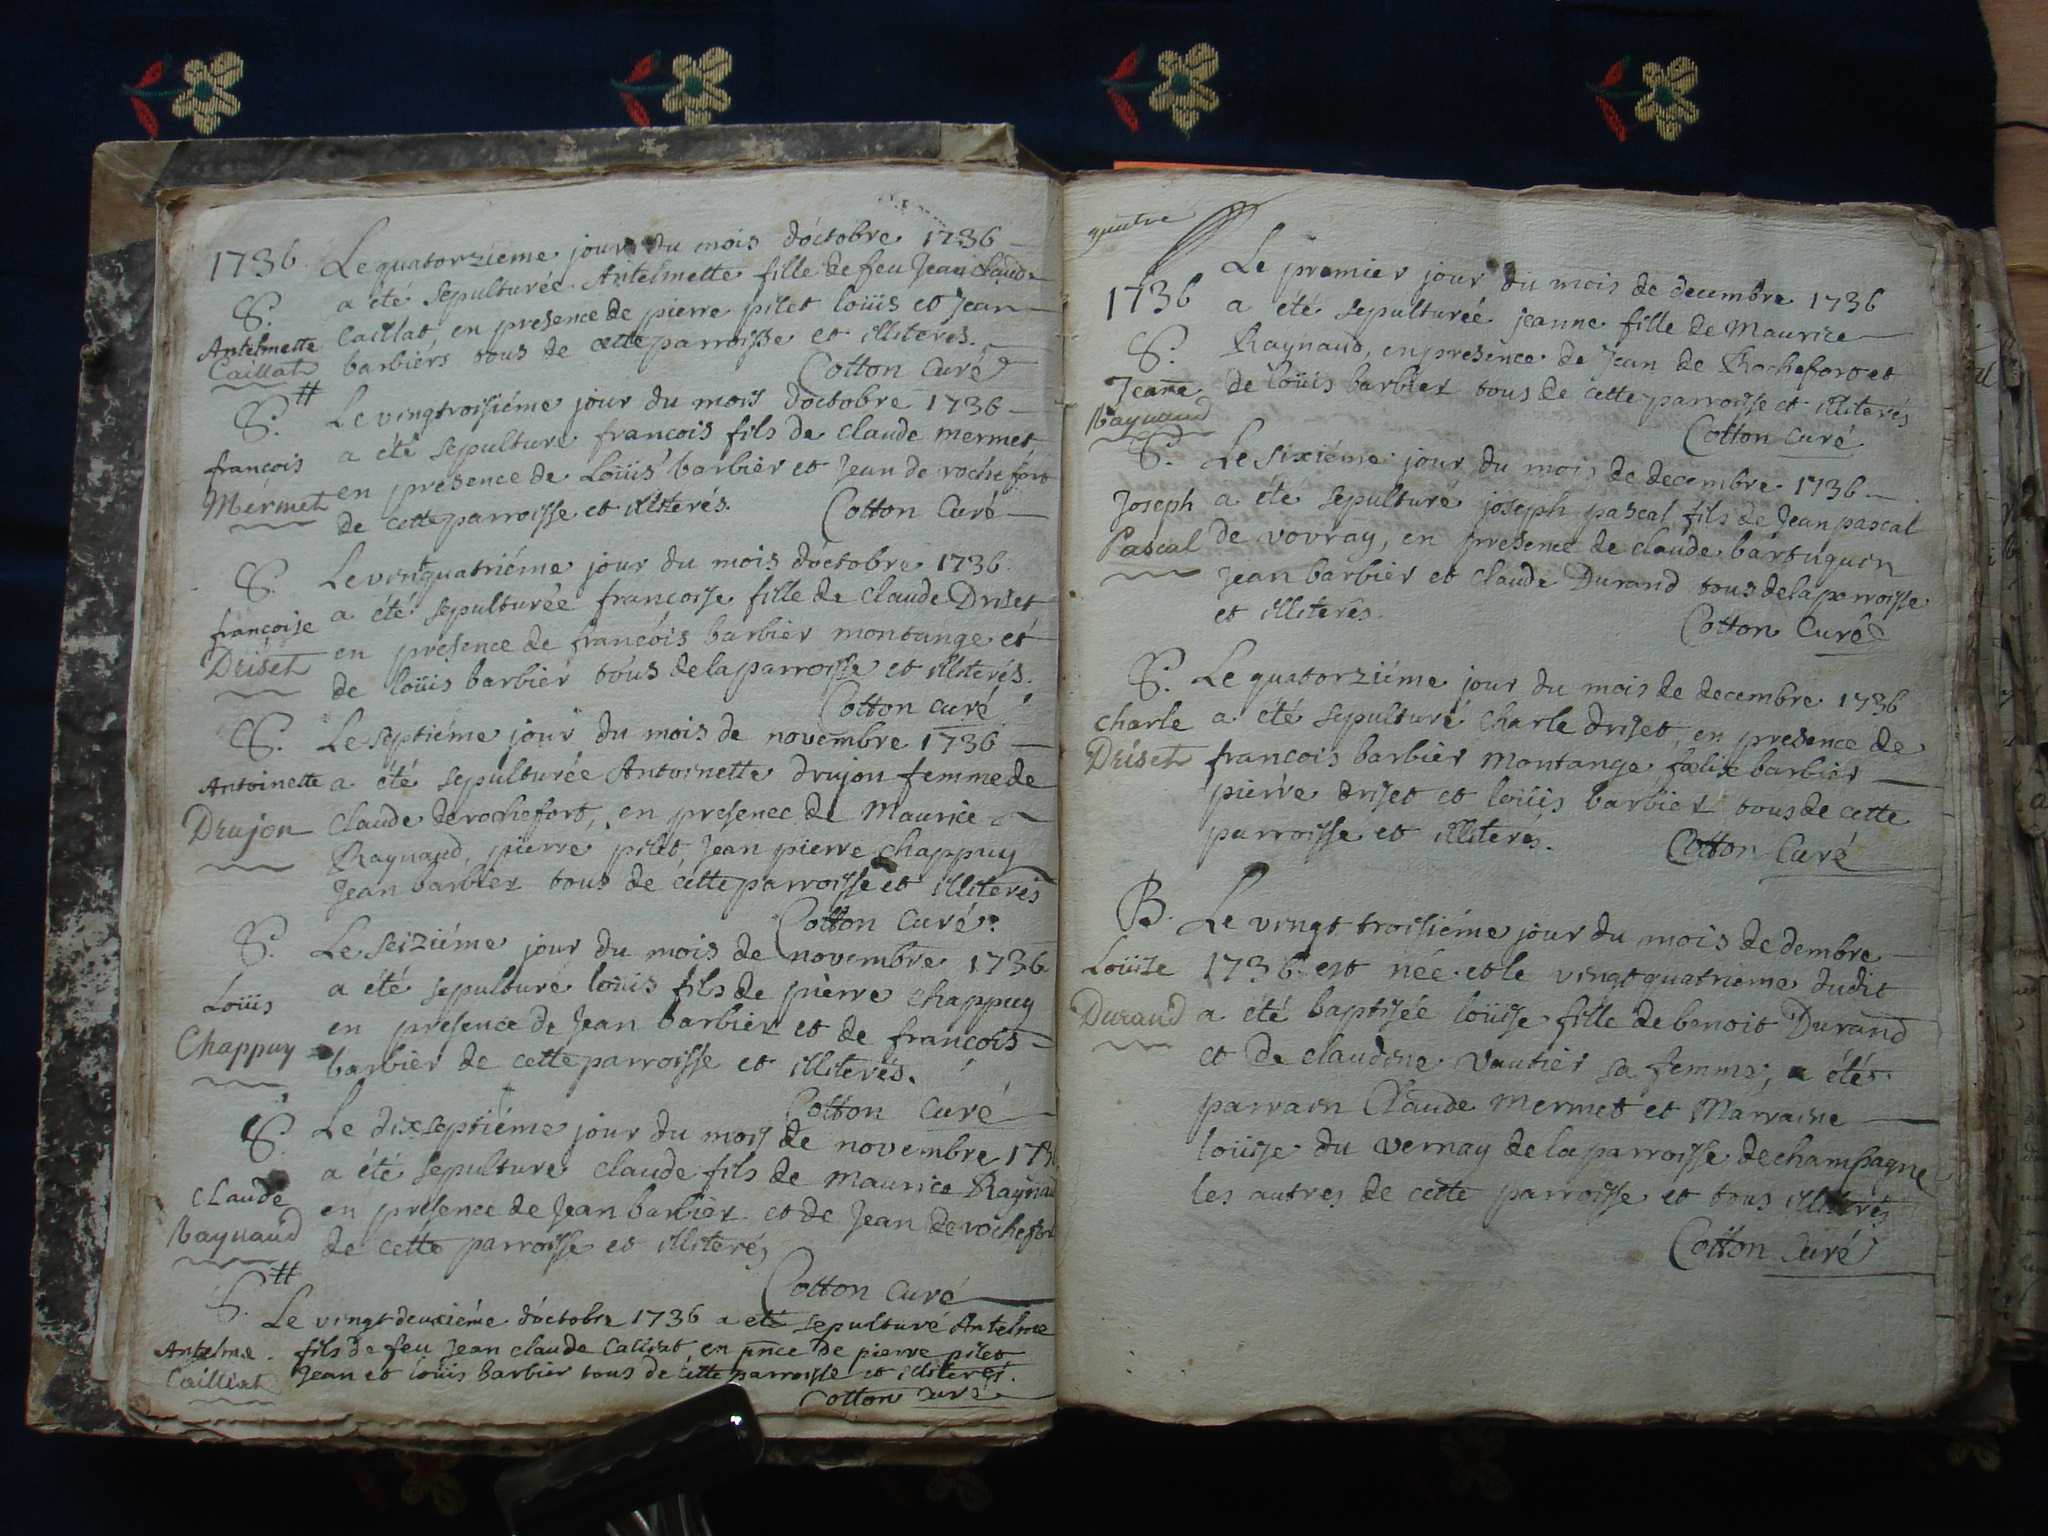 1736. Le quatorziéme jour du mois d'octobre 1736
S. a été sepulturée Antelmette fille de feu Jean Claude
Antelmette Caillat, en presence de pierre pilet loüis et Jean
Caillat barbiers tous de cette parroisse et illiterés.
Cotton Curé
S. # Le vingtroisiéme jour du mois d'octobre 1736
a été sepulturé francois fils de claude mermet
françois en presence de Loüis barbier et Jean de rochefort
Mermet de cette parroisse et illiterés. Cotton Curé
S. Le vintquatriéme jour du mois d'octobre 1736
françoise a été sepulturée francoise fille de Claude Driset
Driset en presence de francois barbier montange et
de loüis barbier tous de la parroisse et illiterés.
Cotton Curé
S. Le septiéme jour du mois de novembre 1736
Antoinette a été sepulturée Antoinette drujon femme de
Drujon Claude de rochefort, en presence de Maurice
Raynaud, pierre pilet, Jean pierre Chappuy
Jean barbier tous de cette parroisse et illiterés
Cotton Curé.
S. Le seiziéme jour du mois de novembre 1736
a été sepulturé loüis fils de pierre Chappuy
Loüis en presence de Jean barbier et de francois
Chappuy barbier de cette parroisse et illiterés.
Cotton Curé
S. Le dixseptiéme jour du mois de novembre 173
a été sepulturé Claude fils de Maurice Raynau
Claude en presence de Jean barbier et de Jean de rochefort
Raynaud de cette parroisse et illiterés
Cotton Curé
S. # Le vingt deuxiéme d'octobre 1736 a été sepulturé Antelme
Antelme fils de feu Jean claude Caillat en pnce de pierre pilet
Cailliat Jean et loüis barbier tous de cette parroisse et illiterés.
Cotton Curé
quatre
Le premier jour du mois de decembre 1736
1736 a été sepulturée jeanne fille de Maurice
S. Raynaud, en presence de Jean de Rochefort et
Jeanne de loüis barbier tous de cette parroisse et illiterés
Raynaud Cotton Curé
S. Le sixiéme jour du mois de decembre 1736
Joseph a été sepulturé joseph pascal fils de Jean pascal
Pascal de vovray, en presence de claude bartuguen
Jean barbier et Claude Durand tous de la parroisse
et illiterés. Cotton Curé
S. Le quatorziéme jour du mois de decembre 1736
Charle a été sepulturé Charle driset, en presence de
Driset francois barbier Montange, foelix barbier
pierre driset et loüis barbier tous de cette
parroisse et illiterés. Cotton Curé
B. Le vingt troisiéme jour du mois de dembre
Loüise 1736 est née et le vingt quatrieme dudit
Durand a été baptisée loüise fille de benoit Durand
et de claudine Vautier sa femme, a été
parrain Claude Mermet et Marraine
loüise du vernay de la parroisse de champagne
les autres de cette parroisse et tous illiterés
Cotton Curé